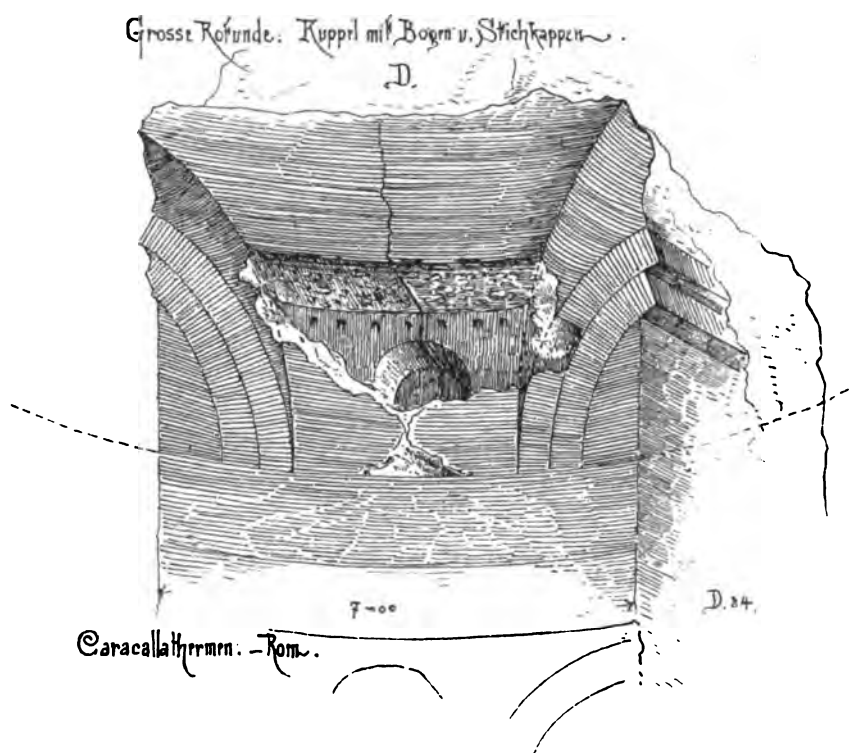 Grosse Rotunde: Kuppel mit Bogen u. Stichkappen.
D.
7-00
D. 84.
Caracallathermen: - Rom.